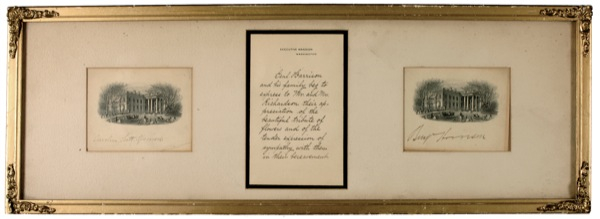 EXECUTIVE MANSION
WASHINGTON
Harrison
and his family, beg to
express to Mr. and Mrs.
Richardson their ap-
preciation of the
beautiful tribute of
flowers and of the
tender expression of
sympathy with them
in their bereavement.
Caroline Scott Harrison
Benj Harrison